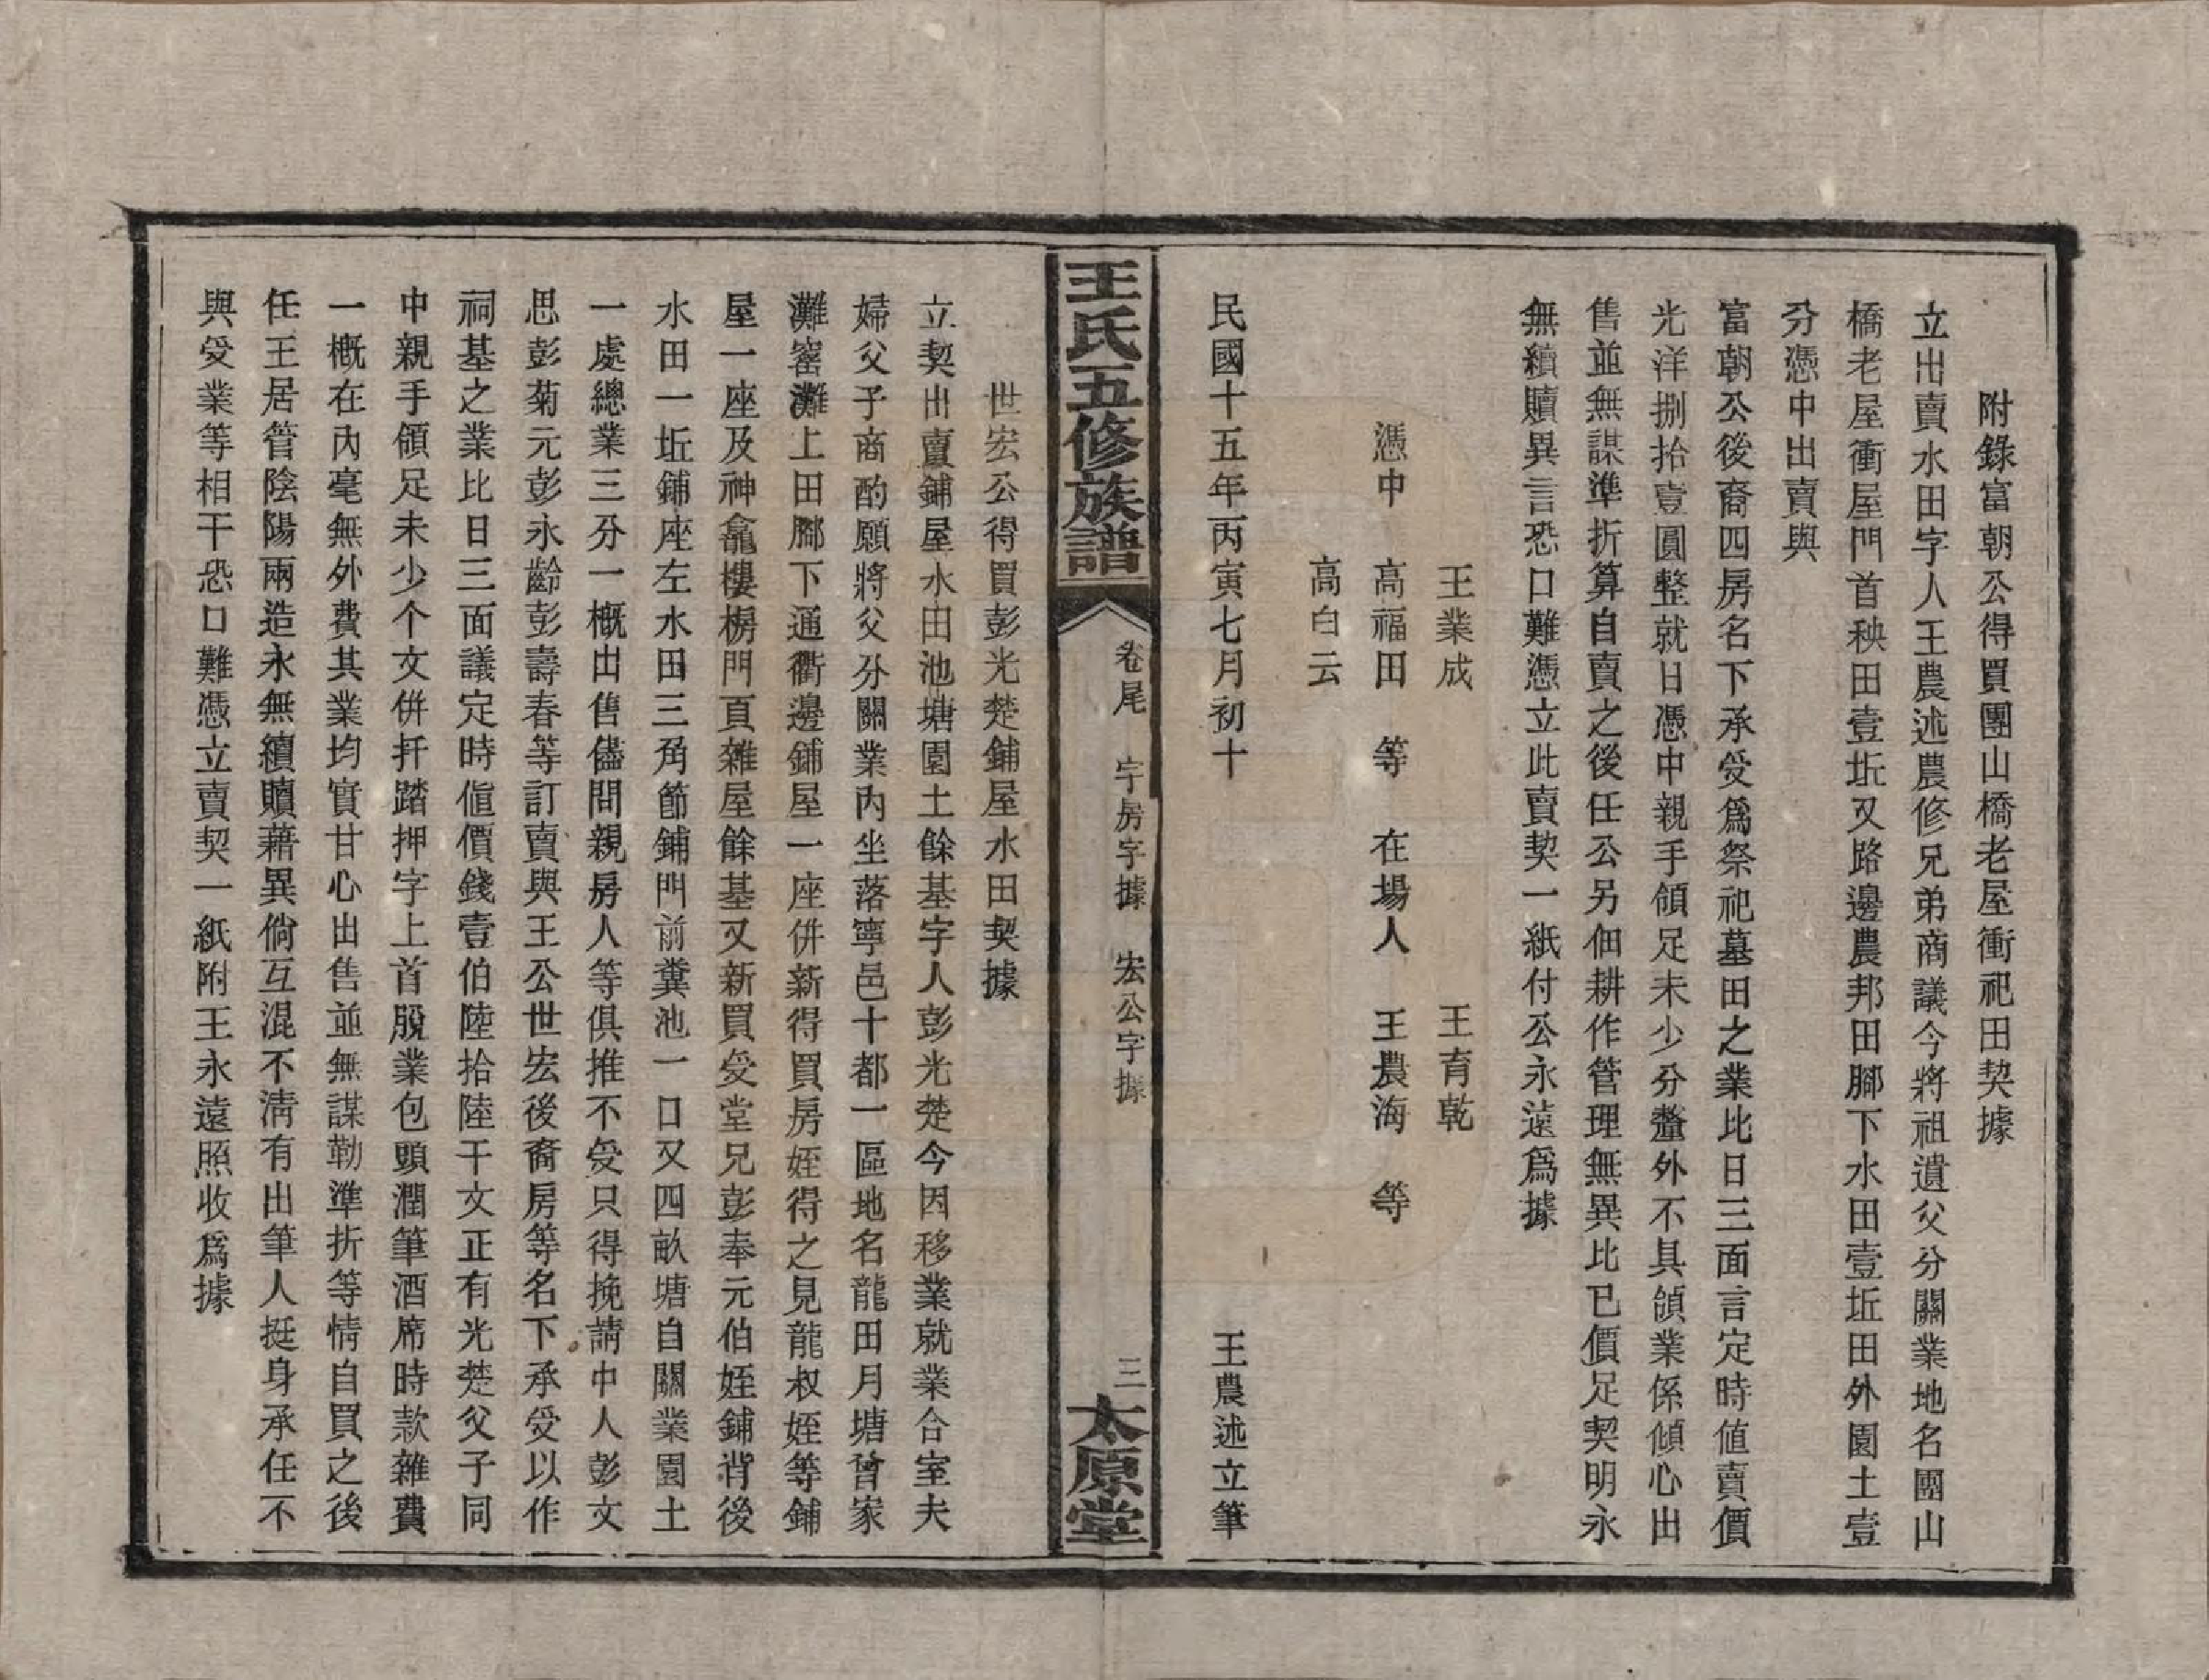 附錄富朝公得買團山橋老屋衝祀田契據
立出賣水田字人王農述農修兄弟商議今將祖遺父分關業地名團山
橋老屋衝屋門首秧田壹坵又路邊農邦田腳下水田壹坵田外園土壹
分憑中出賣與
富朝公後裔四房名下承受爲祭祀墓田之業比日三面言定時值賣價
光洋捌拾壹圓整就日憑中親手領足未少分釐外不具領業係傾心出
售並無謀準折算自賣之後任公另佃耕作管理無異比已價足契明永
無續贖異言恐口難憑立此賣契一紙付公永遠爲據
王業成 王育乾
憑中 高福田 等 在場人 王農海 等
高白云
民國十五年丙寅七月初十 王農述立筆
王氏五修族譜 卷尾 字房字據 宏公字據 三 太原堂
世宏公得買彭光楚鋪屋水田契據
立契出賣鋪屋水田池塘園土餘基字人彭光楚今因移業就業合室夫
婦父子商酌願將父分關業內坐落寧邑十都一區地名龍田月塘曾家
灘窰灘上田腳下通衢邊鋪屋一座併薪得買房姪得之見龍叔姪等鋪
屋一座及神龕樓樹門頁雜屋餘基又新買受堂兄彭奉元伯姪鋪背後
水田一坵鋪座左水田三角節鋪門前糞池一口又四畝塘自關業園土
一處總業三分一概出售儘問親房人等俱推不受只得挽請中人彭文
思彭菊元彭永齡彭壽春等訂賣與王公世宏後裔房等名下承受以作
祠基之業比日三面議定時值價錢壹伯陸拾陸千文正有光楚父子同
中親手領足未少个文併扦踏押字上首脫業包頭潤筆酒席時款雜費
一概在內毫無外費其業均實甘心出售並無謀勒準折等情自買之後
任王居管陰陽兩造永無續贖藉異倘互混不清有出筆人挺身承任不
與受業等相干恐口難憑立賣契一紙附王永遠照收爲據